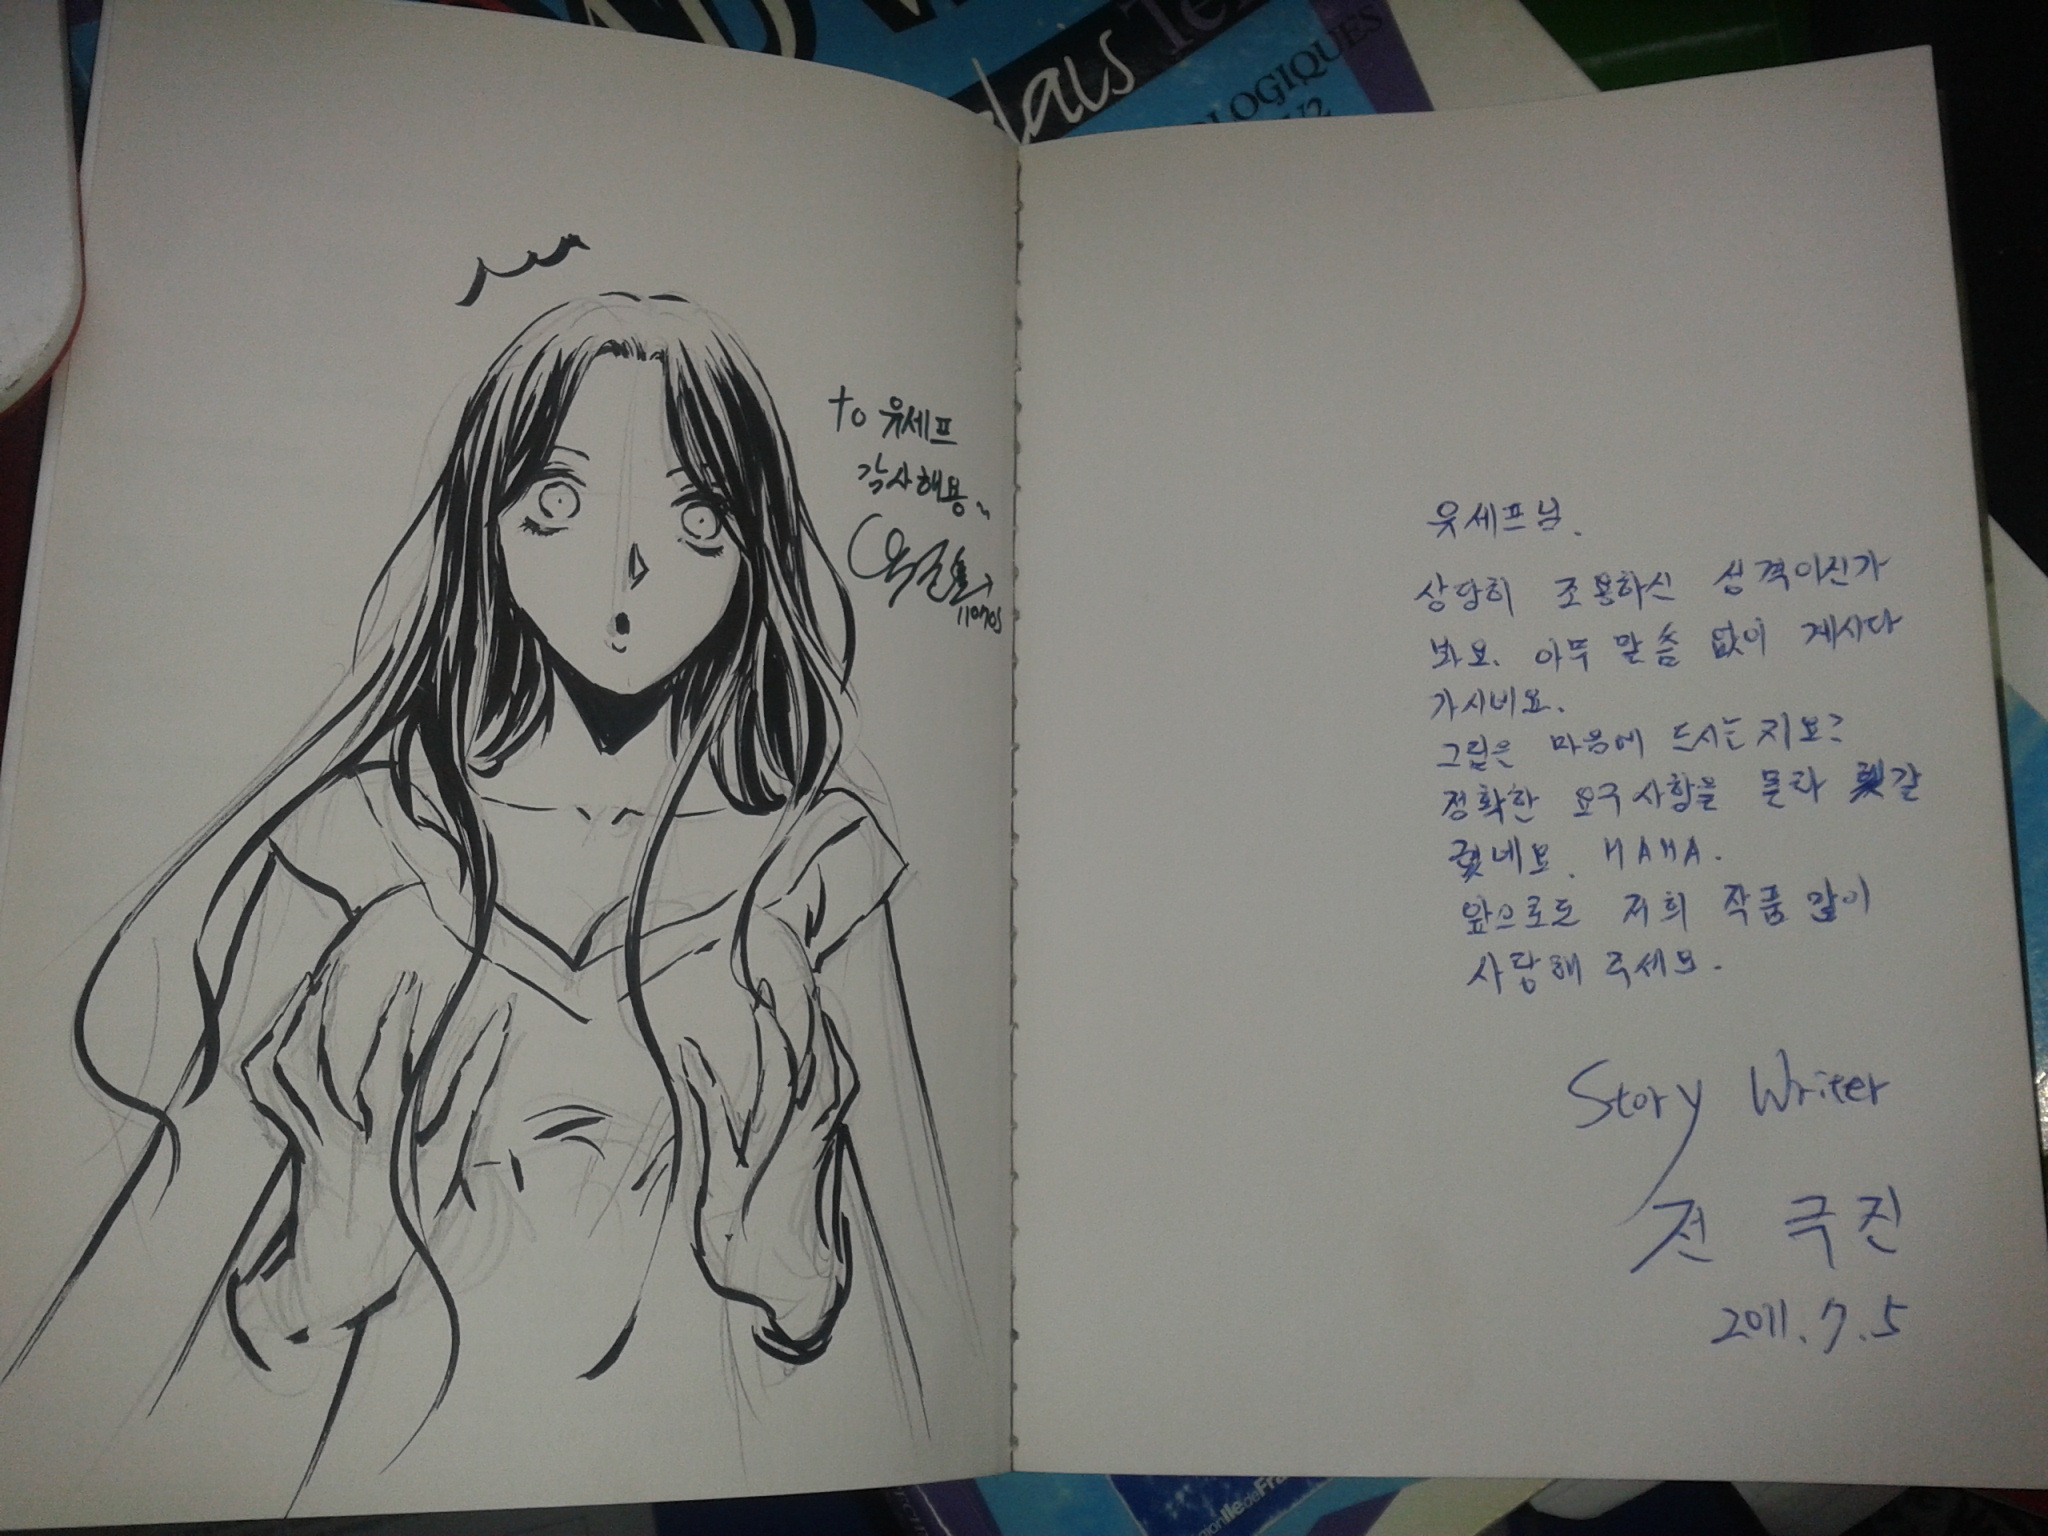 to 유세프
감사해용~
110705
유세프님.
상당히 조용하신 성격이신가
봐요. 아무 말씀 없이 계시다
가시네요.
그림은 마음에 드시는지요?
정확한 요구사항을 몰라 헷갈
렸네요. HAHA.
앞으로도 저희 작품 많이
사랑해 주세요.
Story Writer
전 극진
2011. 7. 5
OLOGIQUES
V2